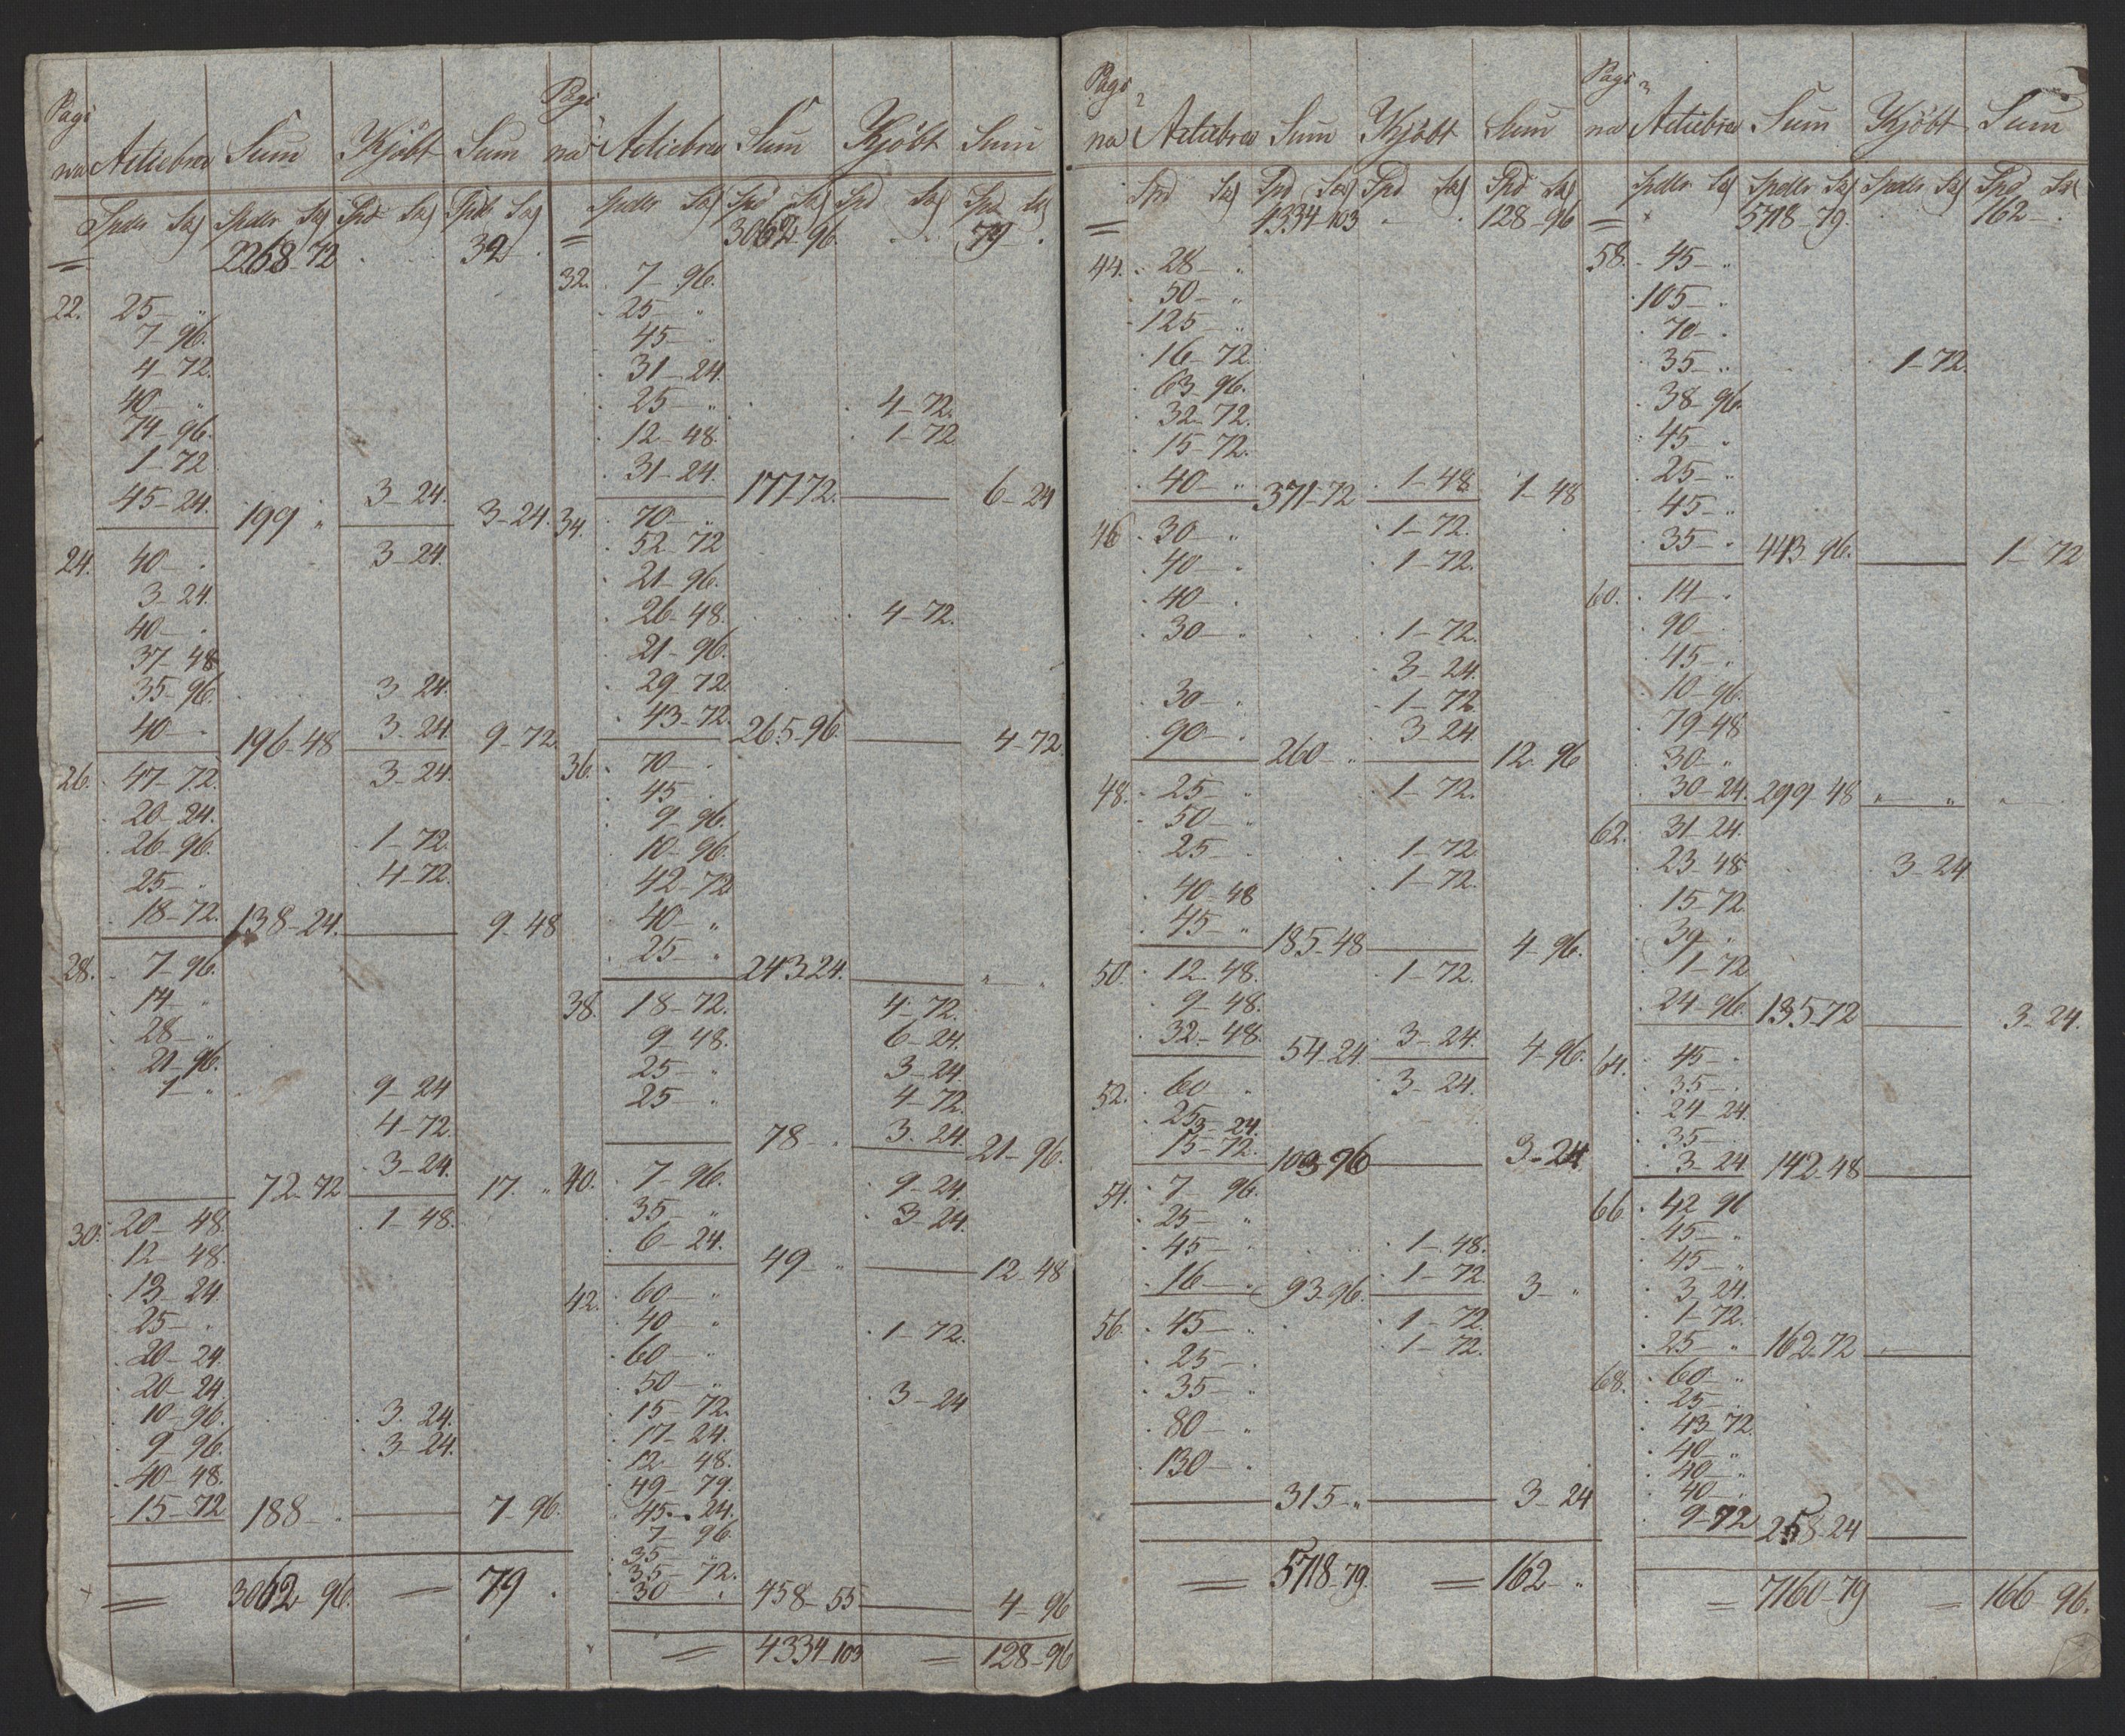 Pagi
na Actiebrev Sum Kjöbt Sum
Spdlr Sk Spdlr Sk Spd Sk Spdlr Sk
= 2268-72 . . 32 .
22. 25- "
7-96.
4-72.
40- "
74-96.
1-72
45-24. 199 " 3-24. 3-24.
24. 40- . 3-24.
3-24.
40- .
37-48
35-96. 3-24.
40- . 196-48 3-24. 9-72
26. 47-72. 3-24.
20-24.
26-96. 1-72.
25- . 4-72.
18-72. 138-24. 9-48
28. 7-96.
14- "
28- "
21-96.
1- " 9-24
4-72.
72-72 3-24. 17. "
30. 20-48. 1-48.
12-48.
13-24.
25- "
20-24.
20-24.
10-96. 3-24.
9-96. 3-24.
40-48.
15-72 188- . 7-96.
= 3062-96. = 79 .
Pagi
na Actiebrev Sum Kjöbt Sum
Spdlr Sk Spd Sk Spd Sk Spd Sk
= 3062-96. 79- .
32. 7-96.
25- "
45- .
31-24.
25- " 4-72.
12-48. 1-72
31-24. 171-72. 6-24
34. 70- "
52-72
21-96.
26-48. 4-72.
21-96.
29-72.
43-72. 265-96. 4-72.
36. 70- .
45 .
9-96.
10-96.
42-72
40- "
25- " 243-24. "
38. 18-72. 4-72.
9-48. 6-24.
25- " 3-24.
25- " 4-72.
78- . 3-24. 21-96.
40. 7-96. 9-24.
35- " 3-24.
6-24. 49- " 12-48
42. 60- "
40- " 1-72.
60- "
50- " 3-24
15-72.
17-24.
12-48.
49-79.
45-24.
7-96
35- "
35-72.
30 . 458-55 4-96
= 4334-103 = 128-96
Pagi
na Actiebrev Sum Kjöbt Sum
Spd Sk Spd Sk Spd Sk Spd Sk
= 4334-103 - . 128-96
44. 28- "
50- "
125- "
16-72.
63-96.
32-72.
15-72.
40- " 371-72 1-48 1-48
46. 30- " 1-72.
40- . 1-72.
40- .
30- " 1-72.
3-24.
30- " 1-72
90- . 3-24.
260- " 12-96
48. 25- " 1-72.
50- "
25- . 1-72
40-48 1-72.
45- " 185-48 4-96.
50. 12-48. 1-72.
9-48.
32-48. 54-24. 3-24. 4-96.
52. 60 " 3-24.
25
3-24.
15-72. 103-96 3-24
54. 7-96.
25- "
45- " 1-48.
16- " 93-96. 1-72. 3- "
56. 45- " 1-72.
25- . 1-72.
35- "
80- "
130- .
315- " 3-24
= 5718-79. = 162- "
Pagi
na Actiebrev Sum Kjöbt Sum
Spdlr Sk Spdlr Sk Spdlr Sk Spd Sk
= 5718-79. 162- .
58. 45- "
105- .
70- .
35- " 1-72.
38-96.
45- .
25- "
45- "
35- . 443-96. 1-72
60. 14- .
90- .
45- "
10-96.
79-48
30- "
30-24. 299-48 " " "
62. 31-24.
23-48 3-24
15-72
39- "
1-72
24-96. 135-72 3-24.
64. 45- .
35- .
24-24.
35- .
3-24 142-48
66. 42-96
45- "
45- "
3-24.
1-72.
25- " 162-72
68. 60- "
25- .
43-72.
40- "
40- "
40- .
9-72 258-24
= 7160-79 = 166-96.